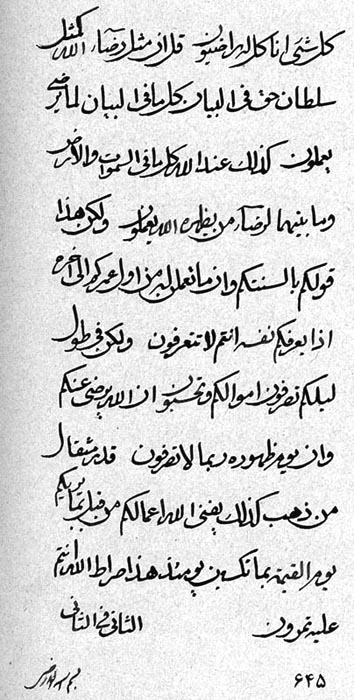 كلشئ انا كل له راضيون قل ان مثل رضاء الله كمثل
سلطان حق في البيان كل ما في البيان لما يرضى
يعملون كذلك عند الله كل ما في السموات والارض
وما بينهما لرضاء من يظهره الله يعملون ولكن هذا
قولكم بالسنتكم وان ما تعملن له من اول عمركم الى اخره
اذا يعرفكم نفسه انتم لا تتعرفون ولكن في طول
ليلكم تصرفون اموالكم وتحسبون ان الله يرضى عنكم
وان يوم ظهوره ربما لا تصرفون قدر مثقال
من ذهب كذلك يفنى الله اعمالكم من قبل بما يريكم
يوم القيمة بما تكسبن يومئذ هذا صراط الله انتم
عليه تمرون الثاني في الثاني
٦٤٥